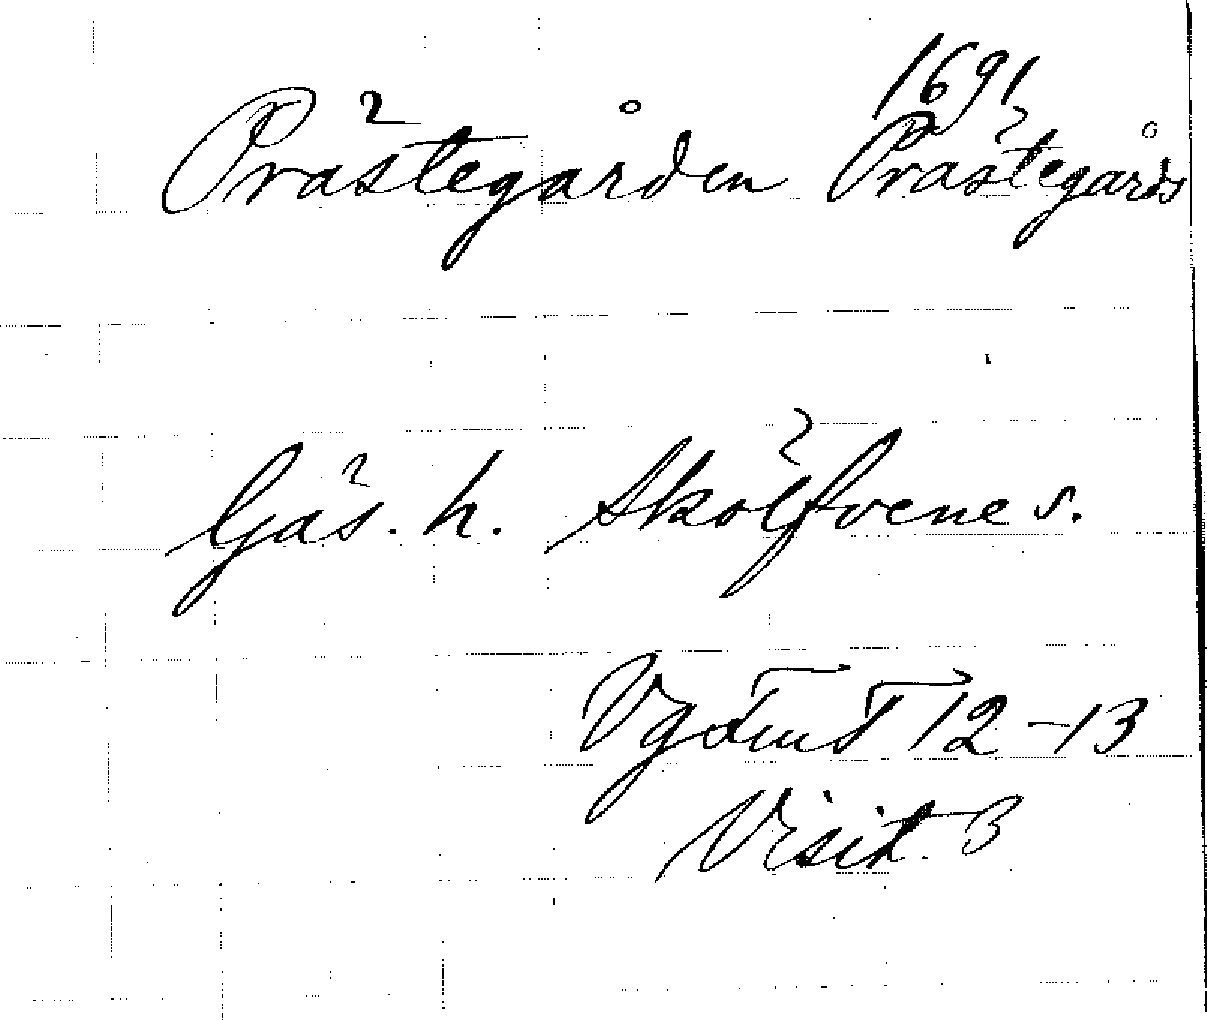 1691
Prästegården Prästegårds
Gäs. h. Skölfvene s.
Vg 12-13
Visit. 3